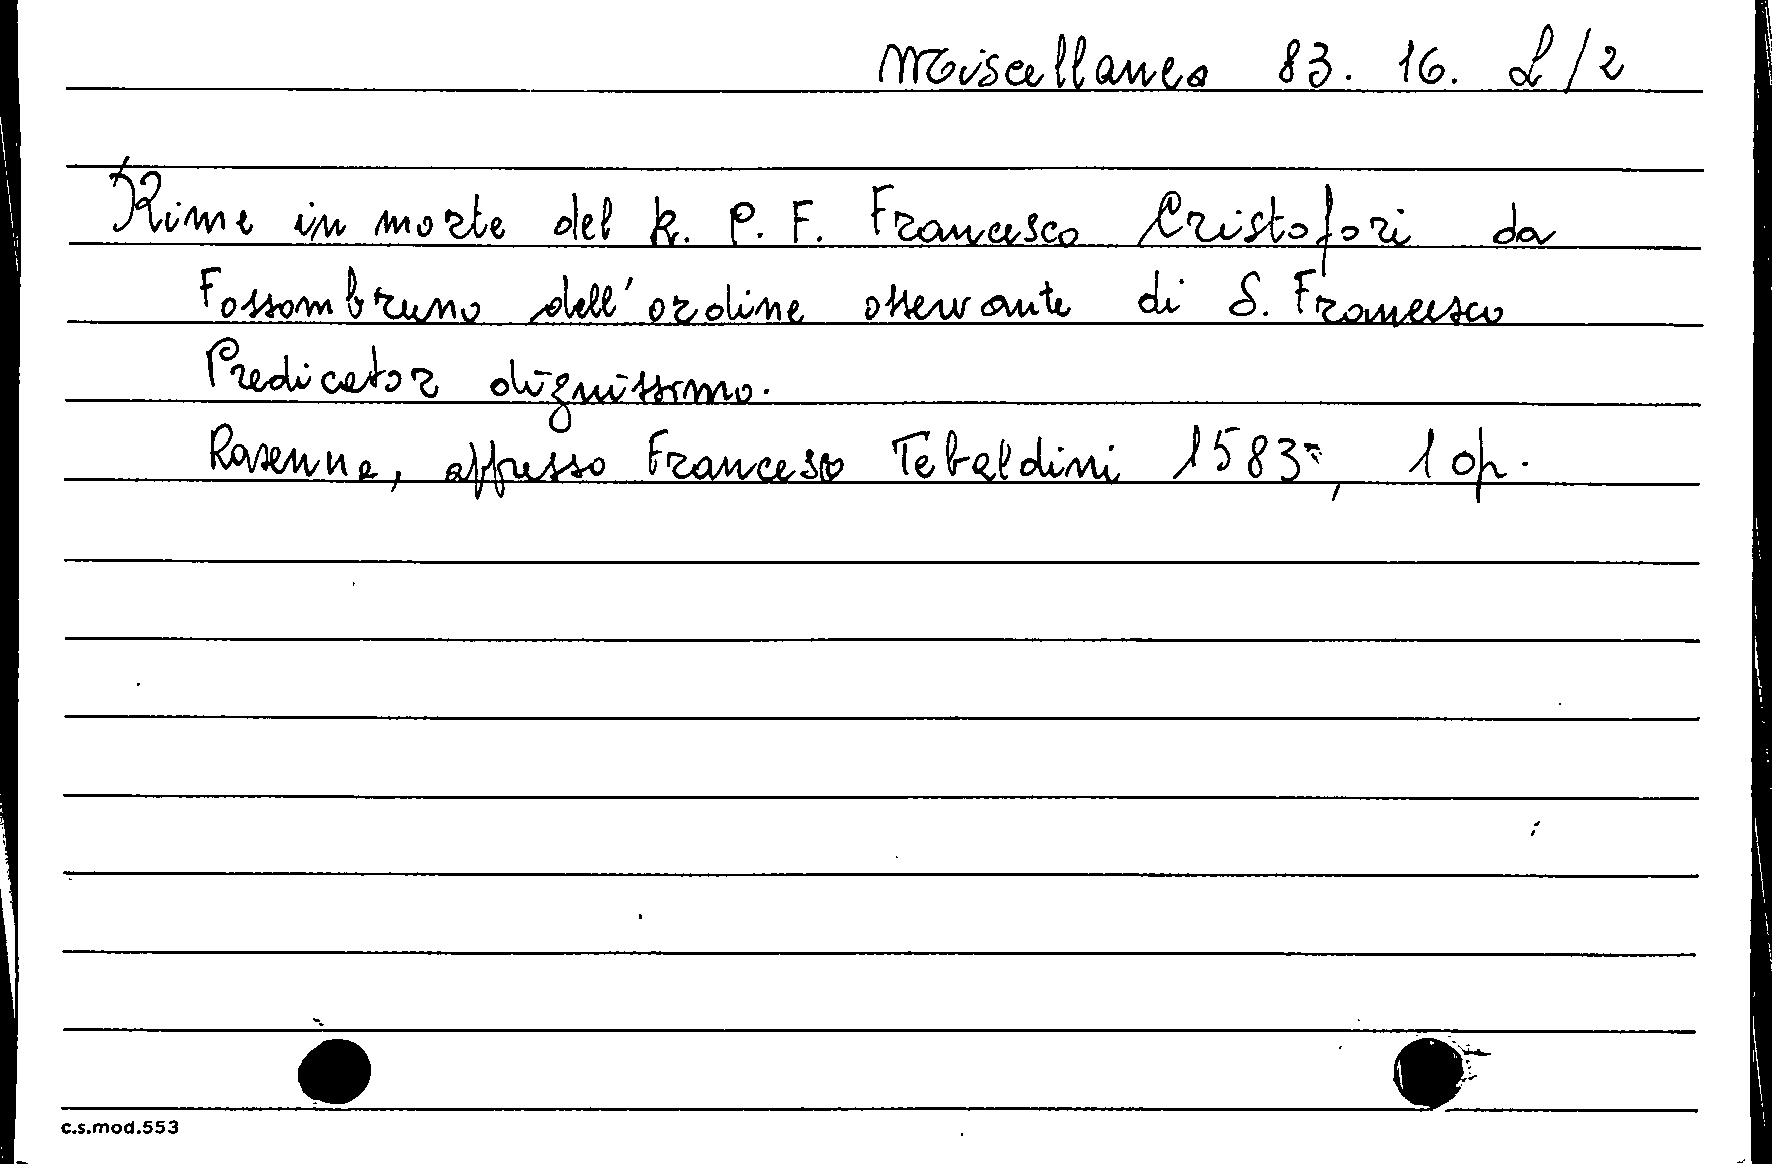 Miscellanea 83. 16. L/2
Rime in morte del R. P. F. Francesco Cristofori da
Fossombruno dell'ordine osservante di S. Francesco
Predicator dignissimo.
Ravenna, appresso Francesco Tebaldini 1583, 1 op.
c.s.mod.553